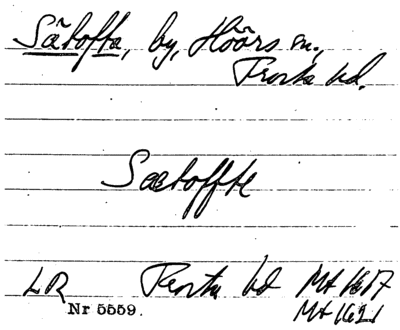 Sätofta, by, Höörs sn.,
Frosta hd.
Sætoffte
LR Frosta hd Mt 1617
Nr 5559. Mt 1621